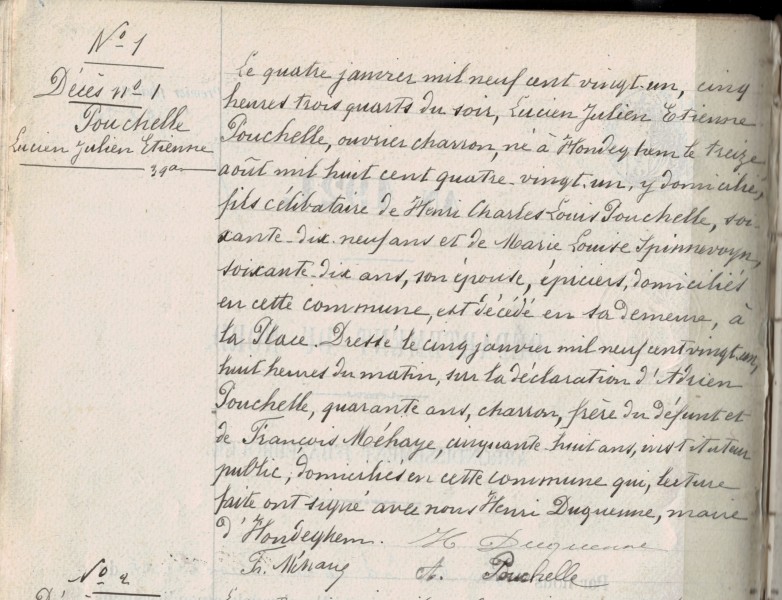 N° 1
Décès n° 1
Pouchelle
Lucien Julien Etienne
39 ans
Le quatre janvier mil neuf cent vingt-un, cinq
heures trois quarts du soir, Lucien Julien Etienne
Pouchelle, ouvrier charron, né à Hondeghem le treize
août mil huit cent quatre-vingt-un, y domicilié,
fils célibataire de Henri Charles Louis Pouchelle, soi-
xante-dix-neuf ans et de Marie Louise Spinnewyn,
soixante-dix ans, son épouse, épiciers, domiciliés
en cette commune, est décédé en sa demeure, à
la Place. Dressé le cinq janvier mil neuf cent vingt-un,
huit heures du matin, sur la déclaration d'Adrien
Pouchelle, quarante ans, charron, frère du défunt et
de François Méhaye, cinquante-huit ans, instituteur
public, domiciliés en cette commune qui, lecture
faite ont signé avec nous Henri Duquenne, maire
d'Hondeghem. H Duquenne
Fr. Méhaye A. Pouchelle
N° 2